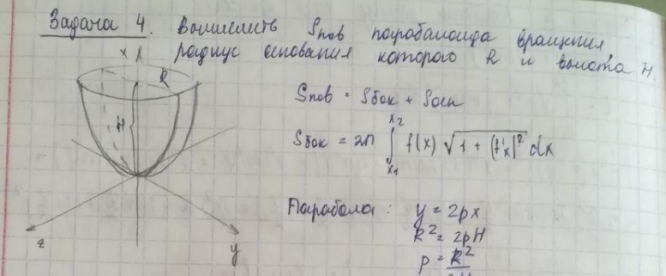 Задача 4. Вычислить Sпов параболоида вращения,
радиус основания которого R и высота H.
x
R
H
z
y
Sпов = Sбок + Sосн
Sбок = 2π ∫ₓ₁ˣ² f(x) √(1 + (f'x)²) dx
Парабола: y = 2px
R² = 2pH
p = R²